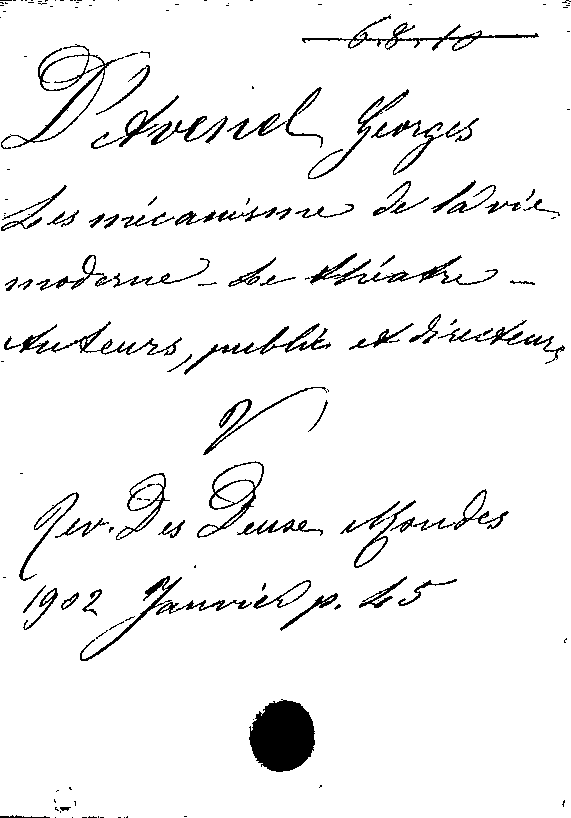 6.8.10
D'Avenel Georges
Les mécanisme de la vie
moderne - Le théatre -
Auteurs, public et directeurs
V
Rev. Des Deuxe Mondes
1902 Janvier p. 45